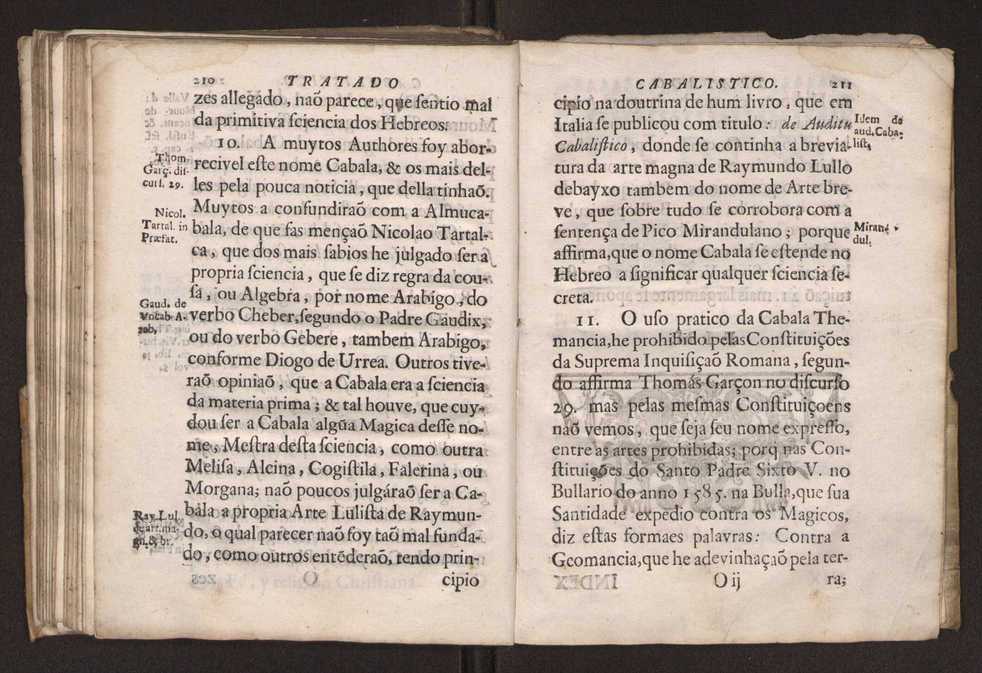 210 TRATADO
zes allegado, naõ parece, que sentio mal
da primitiva sciencia dos Hebreos.
10. A muytos Authores foy abor-
recivel este nome Cabala, & os mais del-
les pela pouca noticia, que della tinhaõ.
Muytos a consundiraõ com a Almuca-
bala, de que fas mençaõ Nicolao Tartal-
ca, que dos mais sabios he julgado ser a
propria sciencia, que se diz regra da cou-
sa, ou Algebra, por nome Arabigo, do
verbo Cheber, segundo o Padre Gaudix,
ou do verbo Gebere, tambem Arabigo,
conforme Diogo de Urrea. Outros tive-
raõ opiniaõ, que a Cabala era a sciencia
da materia prima; & tal houve, que cuy-
dou ser a Cabala algũa Magica desse no-
me, Mestra desta sciencia, como outra
Melisa, Alcina, Cogistila, Falerina, ou
Morgana; naõ poucos julgáraõ ser a Ca-
bala a propria Arte Lulista de Raymun-
do, o qual parecer naõ foy taõ mal funda-
do, como outros entẽderaõ, tendo prin-
O cipio
Thom.
Garç. dis-
curs. 29.
Nicol.
Tartal. in
Præfat.
Gaud. de
Vocab A-
rab,
Ray. Lul.
de art. ma-
gn. & br.
CABALISTICO. 211
cipio na doutrina de hum livro, que em
Italia se publicou com titulo: de Auditu
Cabalistico, donde se continha a brevia-
tura da arte magna de Raymundo Lullo
debayxo tambem do nome de Arte bre-
ve, que sobre tudo se corrobora com a
sentença de Pico Mirandulano; porque
affirma, que o nome Cabala se estende no
Hebreo a significar qualquer sciencia se-
creta.
11. O uso pratico da Cabala The-
mancia, he prohibido pelas Constituições
da Suprema Inquisiçaõ Romana, segun-
do affirma Thomás Garçon no discurso
29. mas pelas mesmas Constituiçoens
naõ vemos, que seja seu nome expresso,
entre as artes prohibidas; porq̃ nas Con-
stituições do Santo Padre Sixto V. no
Bullario do anno 1585. na Bulla, que sua
Santidade expedio contra os Magicos,
diz estas formaes palavras: Contra a
Geomancia, que he adevinhaçaõ pela ter-
O ij ra;
Idem de
aud. Caba-
list.
Mirand
dul.